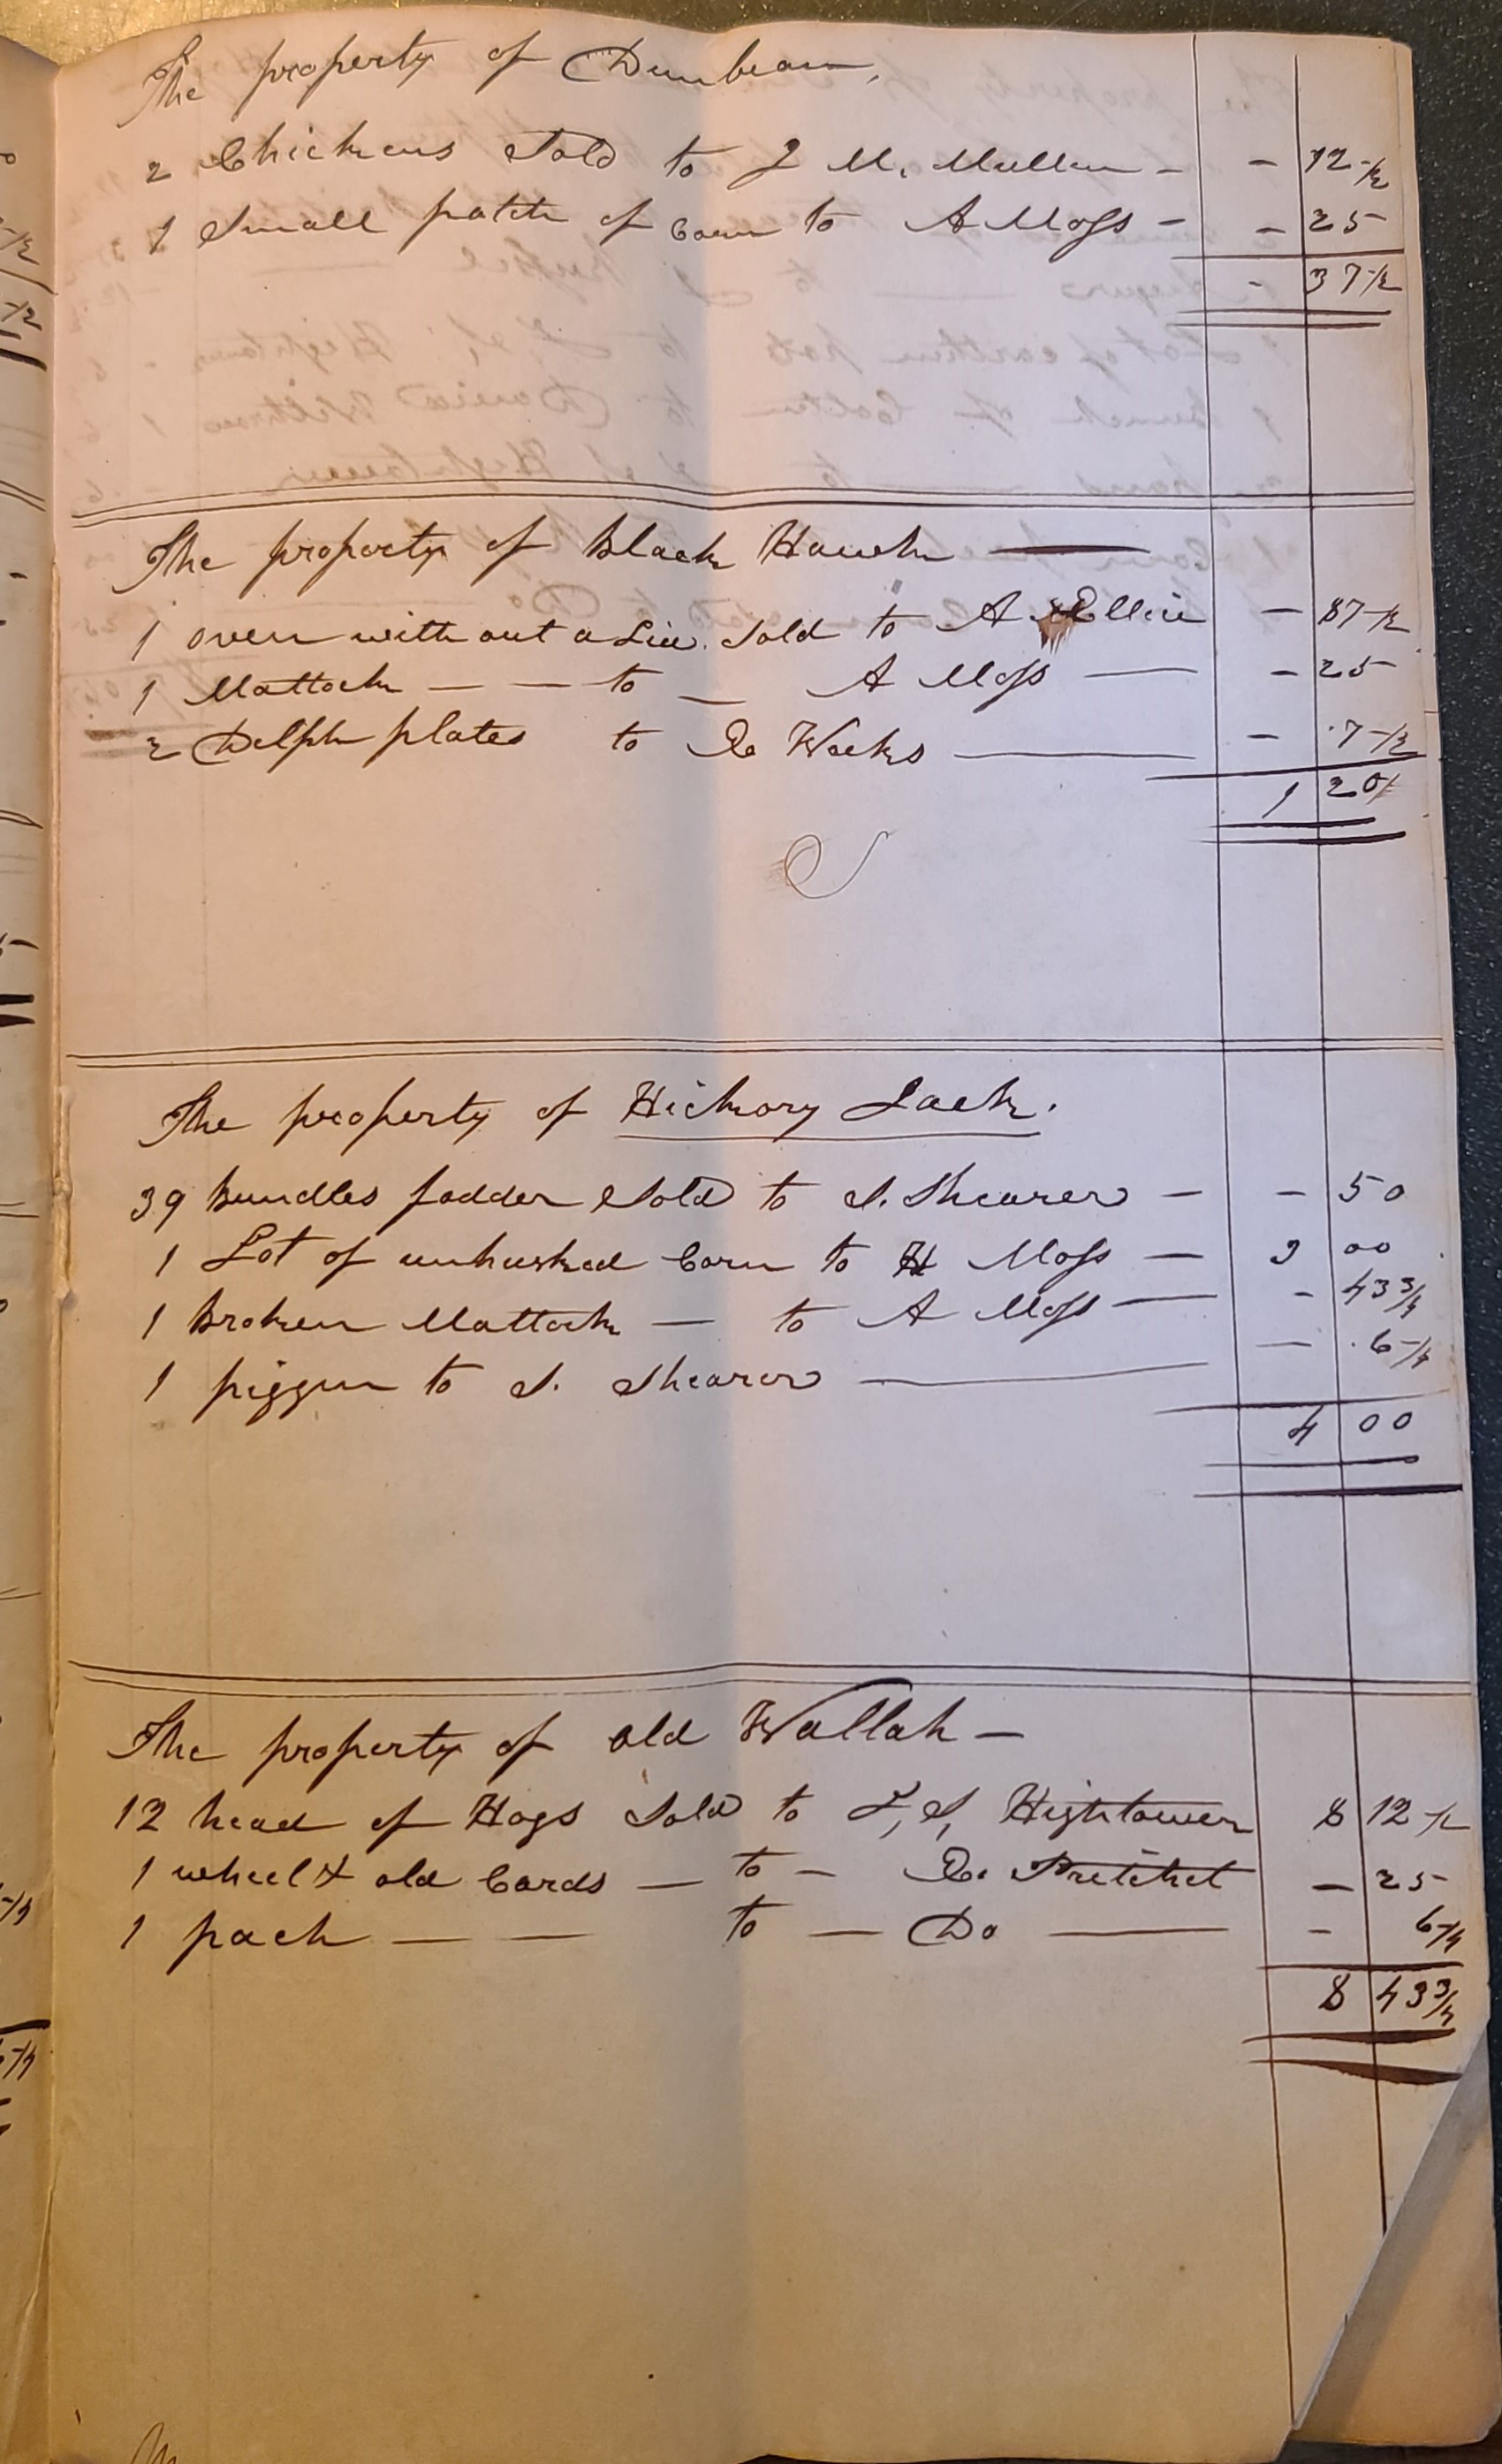 The property of Dunbean,
2 Chickens Sold to J M. Mullen - - 12 1/2
1 Small patch of Corn to A Moss - - 25
- 37 1/2
The property of Black Hawk
1 oven with out a Lid. Sold to A Ellis - 87 1/2
1 Mattock - - to - A Moss - - 25
2 Delph plates to Weeks - 7 1/2
1 20
The property of Hickory Jack.
39 bundles fodder Sold to S. Shearer - - 50
1 Lot of unhusked Corn to H Moss - 3 00
1 broken Mattock - to A Moss - - 43 3/4
1 piggin to S. Shearer - .6 1/4
4 00
The property of old Wallah -
12 head of Hogs Sold to Hightower 8 12 1/2
1 wheel & old Cards - to - Pritchet - 25
1 pack - - to - Do - 6 1/4
8 43 3/4